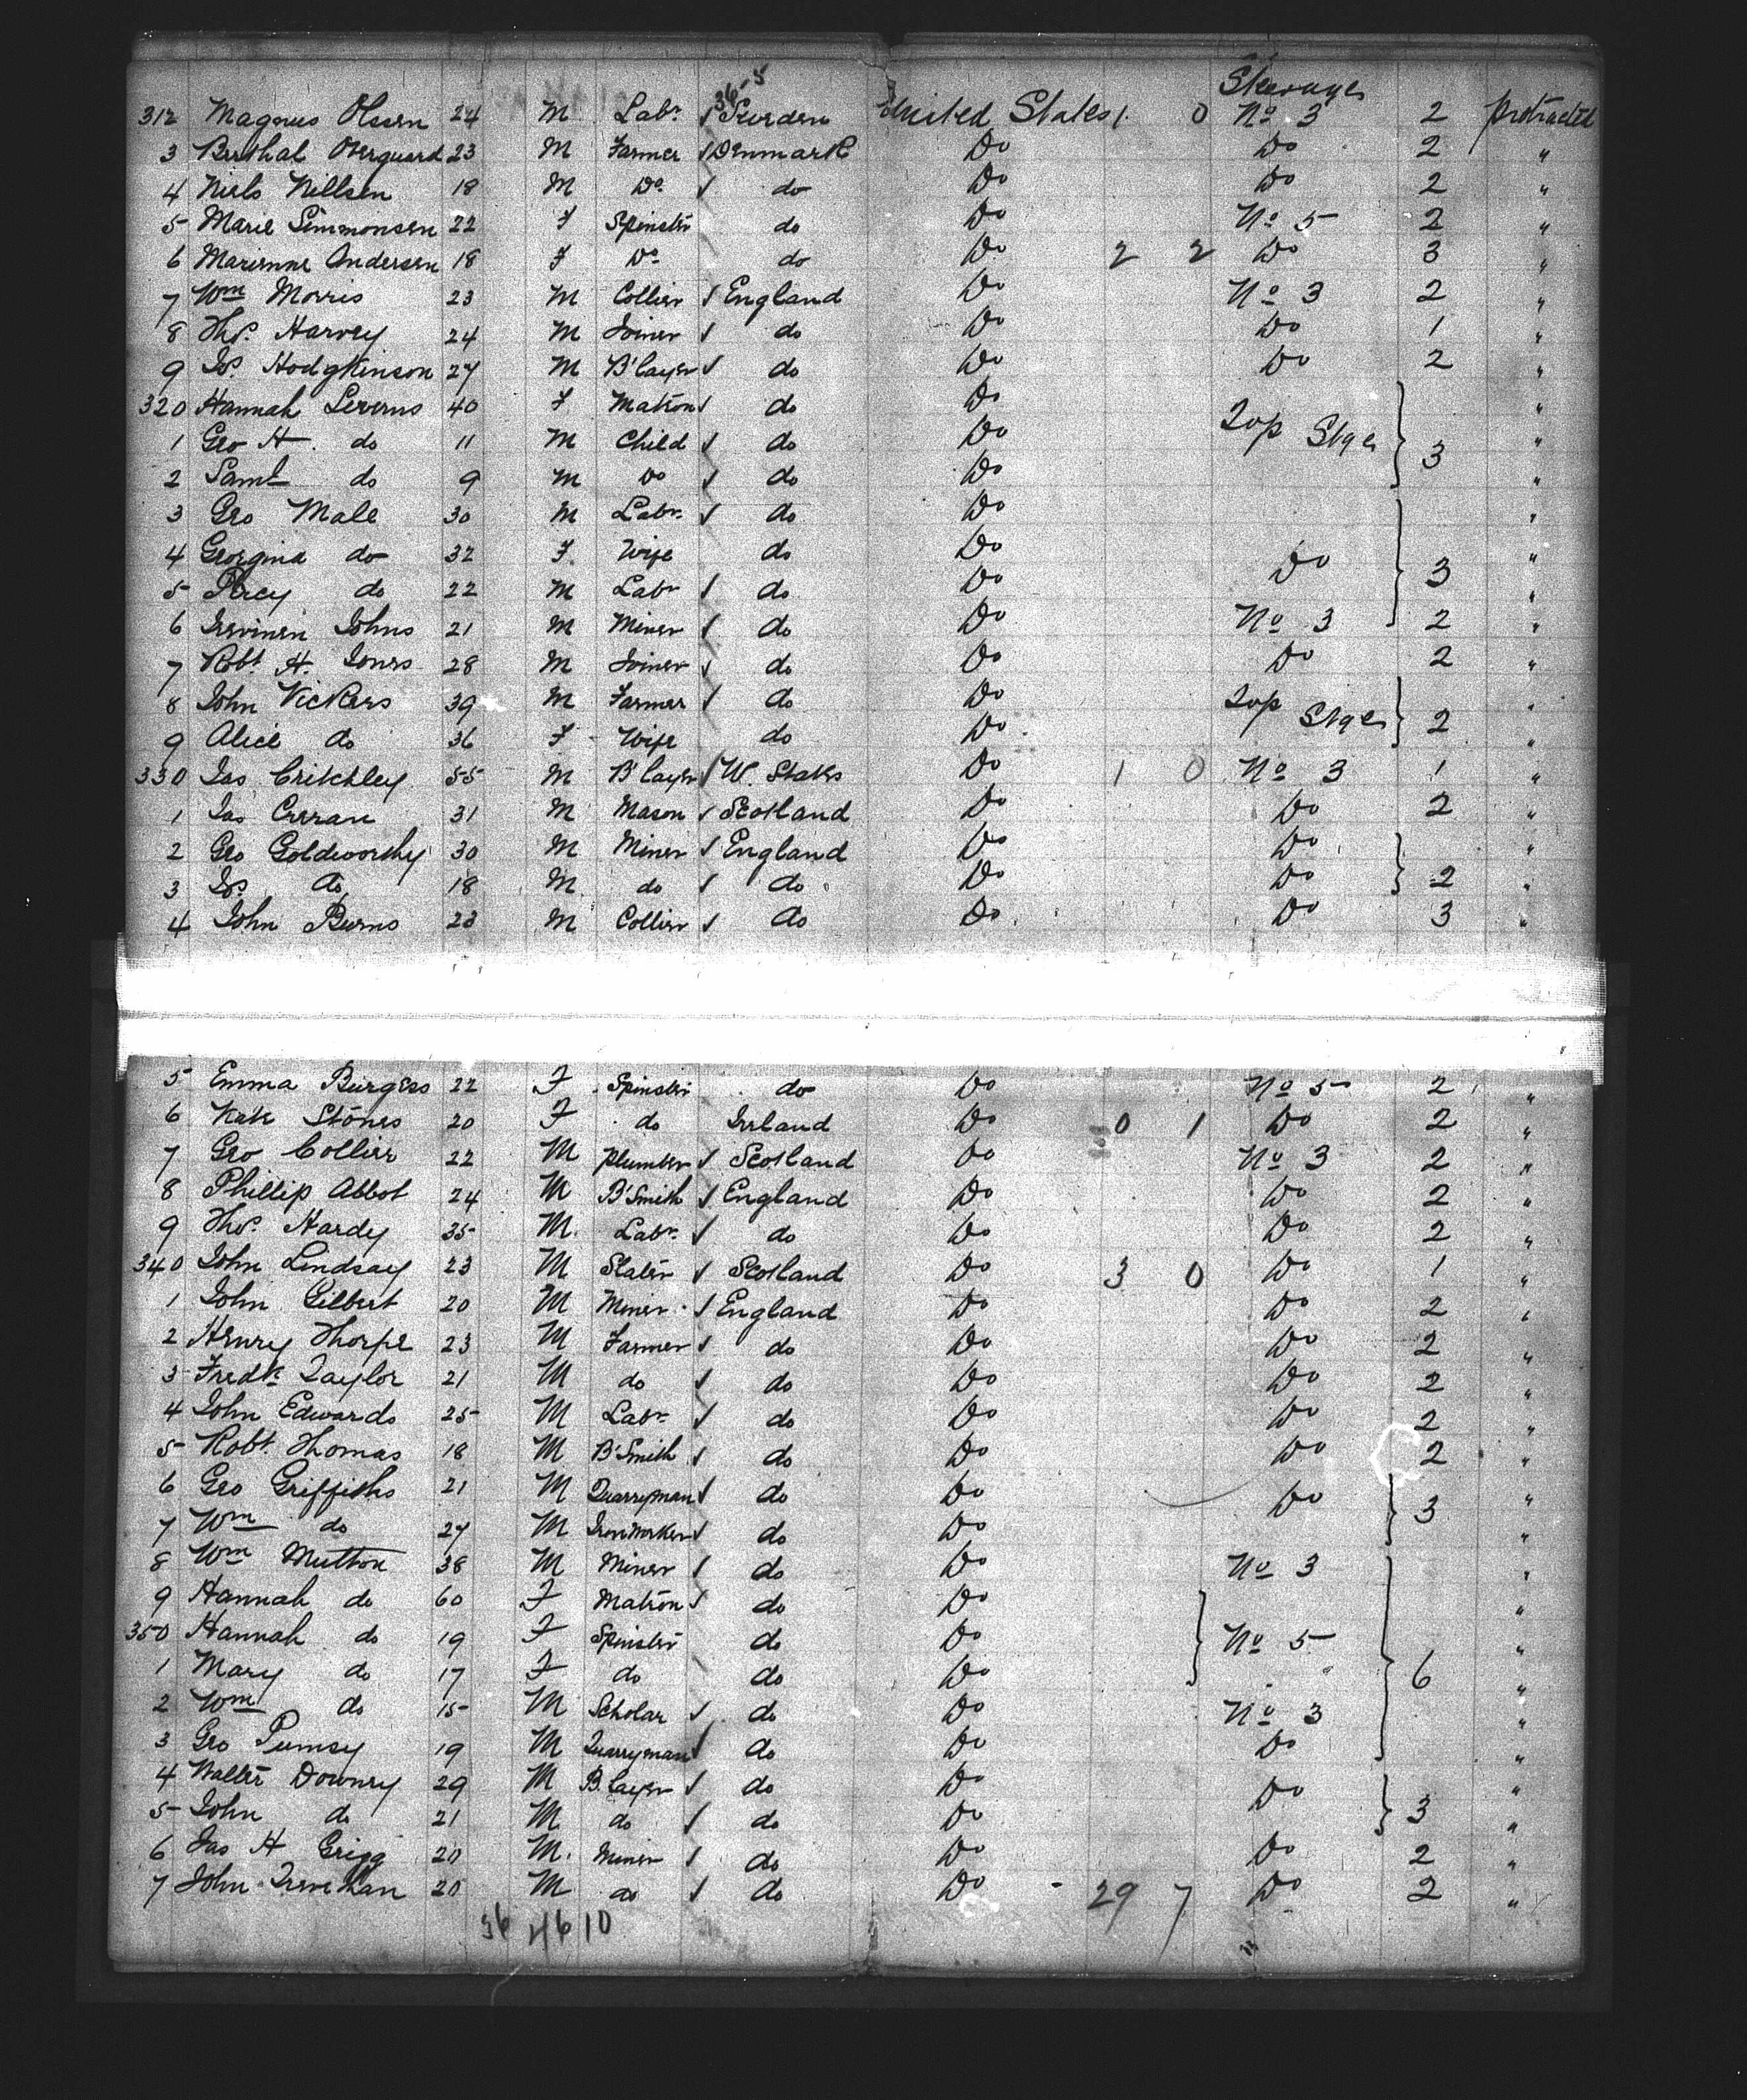 36-5 Steerage
312 Magnus Olssen 24 M Labr Sweden United States 1. 0 No 3 2 protracted
3 Berthal Overguard 23 M Farmer Denmark Do Do 2 "
4 Niels Nillsen 18 M Do do Do Do 2 "
5 Marie Simmonsen 22 F Spinster do Do No 5 2 "
6 Marienne Andersen 18 F Do do Do 2 2 Do 3 "
7 Wm Morris 23 M Collier England Do No 3 2 "
8 Thos. Harvey 24 M Joiner do Do Do 1 "
9 Js. Hodgkinson 27 M B'layer do Do Do 2 "
320 Hannah Severns 40 F Matron do Do "
1 Geo H. do 11 M Child do Do Top Stge 3 "
2 Saml do 9 M Do do Do "
3 Geo Male 30 M Labr do Do "
4 Georgina do 32 F. Wife do Do Do 3 "
5 Percy do 22 M Labr do Do "
6 Irevinen Johns 21 M Miner do Do No 3 2 "
7 Robt. H. Jones 28 M Joiner do Do Do 2 "
8 John Vickers 39 M Farmer do Do Top Stge 2 "
9 Alice do 36 F Wife do Do "
330 Jas Critchley 55 M B'layer W. States Do 1 0 No 3 1 "
1 Jas Creran 31 M Mason Scotland Do Do 2 "
2 Geo Goldworthy 30 M Miner England Do Do "
3 Js. do 18 M do do Do Do 2 "
4 John Burns 23 M Collier do Do Do 3 "
5 Emma Burgess 22 F Spinster do Do No 5 2 "
6 Kate Stones 20 F do Ireland Do 0 1 Do 2 "
7 Geo Collier 22 M Plumber Scotland Do No 3 2 "
8 Phillip Abbot 24 M B'Smith England Do Do 2 "
9 Thos. Hardy 35 M. Labr do Do Do 2 "
340 John Lindsay 23 M Slater Scotland Do 3 0 Do 1 "
1 John Gilbert 20 M Miner England Do Do 2 "
2 Henry Thorpe 23 M Farmer do Do Do 2 "
3 Fredk Taylor 21 M do do Do Do 2 "
4 John Edwards 25 M Labr do Do Do 2 "
5 Robt. Thomas 18 M B'Smith do Do Do 2 "
6 Geo Griffiths 21 M Quarryman do Do Do 3 "
7 Wm do 27 M Ironworker do Do "
8 Wm Mutton 38 M Miner do Do No 3 "
9 Hannah do 60 F Matron do Do "
350 Hannah do 19 F Spinster do Do No 5 "
1 Mary do 17 F do do Do 6 "
2 Wm do 15 M Scholar do Do No 3 "
3 Geo Pumsy 19 M Quarryman do Do Do "
4 Walter Downey 29 M B.layer do Do Do "
5 John do 21 M do do Do 3 "
6 Jas H Grigg 20 M. Miner do Do Do 2 "
7 John Trevethan 20 M do do Do 29 7 Do 2 "
36 46 10